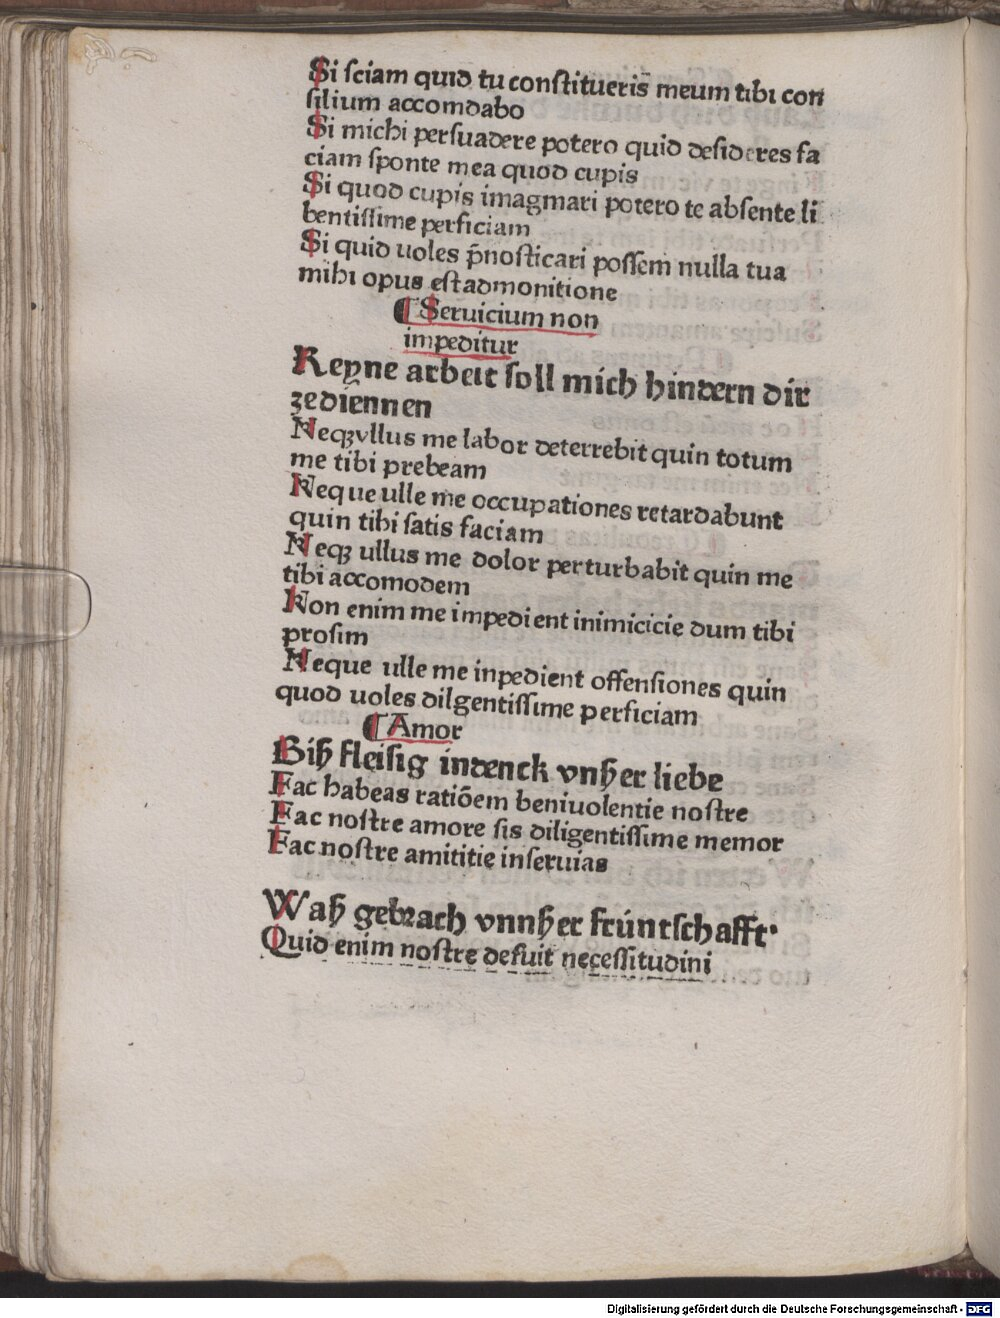 Si sciam quid tu constitueris meum tibi con
silium accomdabo
Si michi persuadere potero quid desideres fa
ciam sponte mea quod cupis
Si quod cupis imagmari potero te absente li
bentissime perficiam
Si quid uoles p̄nosticari possem nulla tua
mihi opus estadmonitione
⸿ Seruicium non
impeditur
Reyne arbeit soll mich hindern dir
zediennen
Neqꝫvllus me labor deterrebit quin totum
me tibi prebeam
Neque ulle me occupationes retardabunt
quin tibi satis faciam
Neqꝫ ullus me dolor perturbabit quin me
tibi accomodem
Non enim me impedient inimicicie dum tibi
prosim
Neque ulle me inpedient offensiones quin
quod uoles dilgentissime perficiam
⸿ Amor
Biß fleisig indenck vnßer liebe
Fac habeas ratiōem beniuolentie nostre
Fac nostre amore sis diligentissime memor
Fac nostre amititie inseruias
Waß gebrach vnnßer frúntschafft·
Quid enim nostre defuit necessitudini
Digitalisierung gefördert durch die Deutsche Forschungsgemeinschaft - DFG